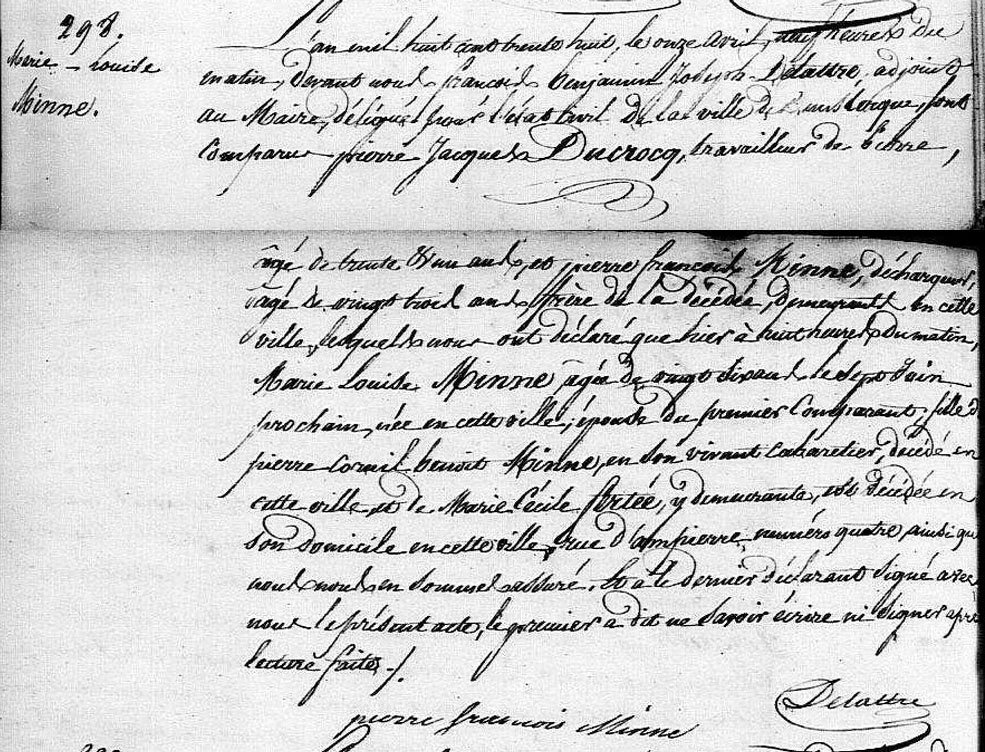 298.
Marie-Louise
Minne.
L'an mil huit cent trente huit, le onze avril, neuf heures du
matin, devant nous françois benjamin Joseph Delattre, adjoint
au Maire, délégué pour l'état civil de la ville de Dunkerque, sont
comparus pierre Jacques Ducrocq, travailleur de terre,
âgé de trente & un ans, et pierre françois Minne, déchargeur,
âgé de vingt trois ans, frère de la décédée, demeurants en cette
ville, lesquels nous ont déclaré que hier à huit heures du matin,
Marie Louise Minne âgée de vingt six ans le sept Juin
prochain, née en cette ville, épouse du premier Comparant, fille d
pierre Cornil benoit Minne, en son vivant Cabaretier, décédé en
cette ville et de Marie Cécile fortée, y demeurante, est décédée en
son domicile en cette ville, rue d'ampierre numéro quatre ainsi que
nous nous en sommes assuré. Et a le dernier déclarant signé avec
nous le présent acte, le premier a dit ne savoir écrire ni signer après
lecture faite ./.
pierre françois Minne
Delattre